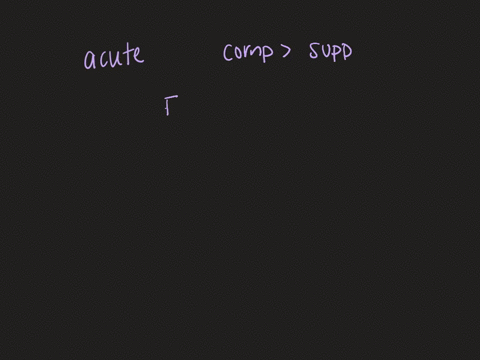 acute comp > supp